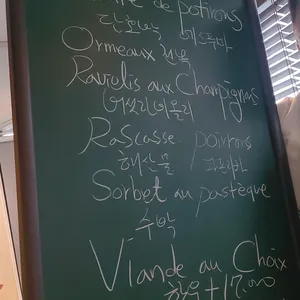 de potirons
단호박
Ormeaux 전복
Raviolis aux Champignons
버섯라비올리
Rascasse poivrons
해산물 파프리카
Sorbet au pastèque
-수박
Viande au Choix
한우 +17,000